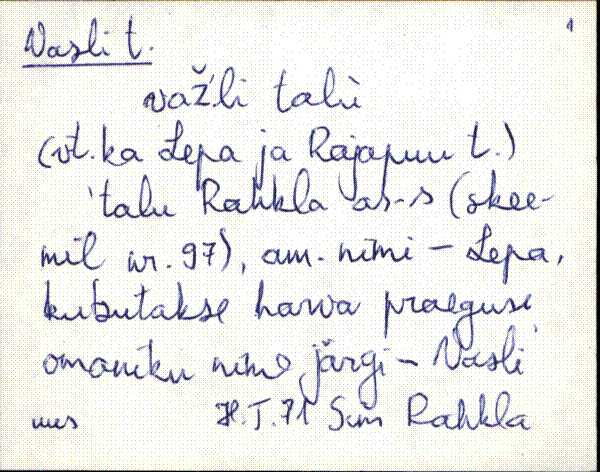 1
Vasli t.
važ'li talù
(vt. ka Lepa ja Rajapuu t.)
'talu Rahkla as-s (skee-
mil nr. 97), am. nimi – Lepa,
kutsutakse harva praeguse
omaniku nime järgi – Vasli
H.T. 71 Sim Rahkla